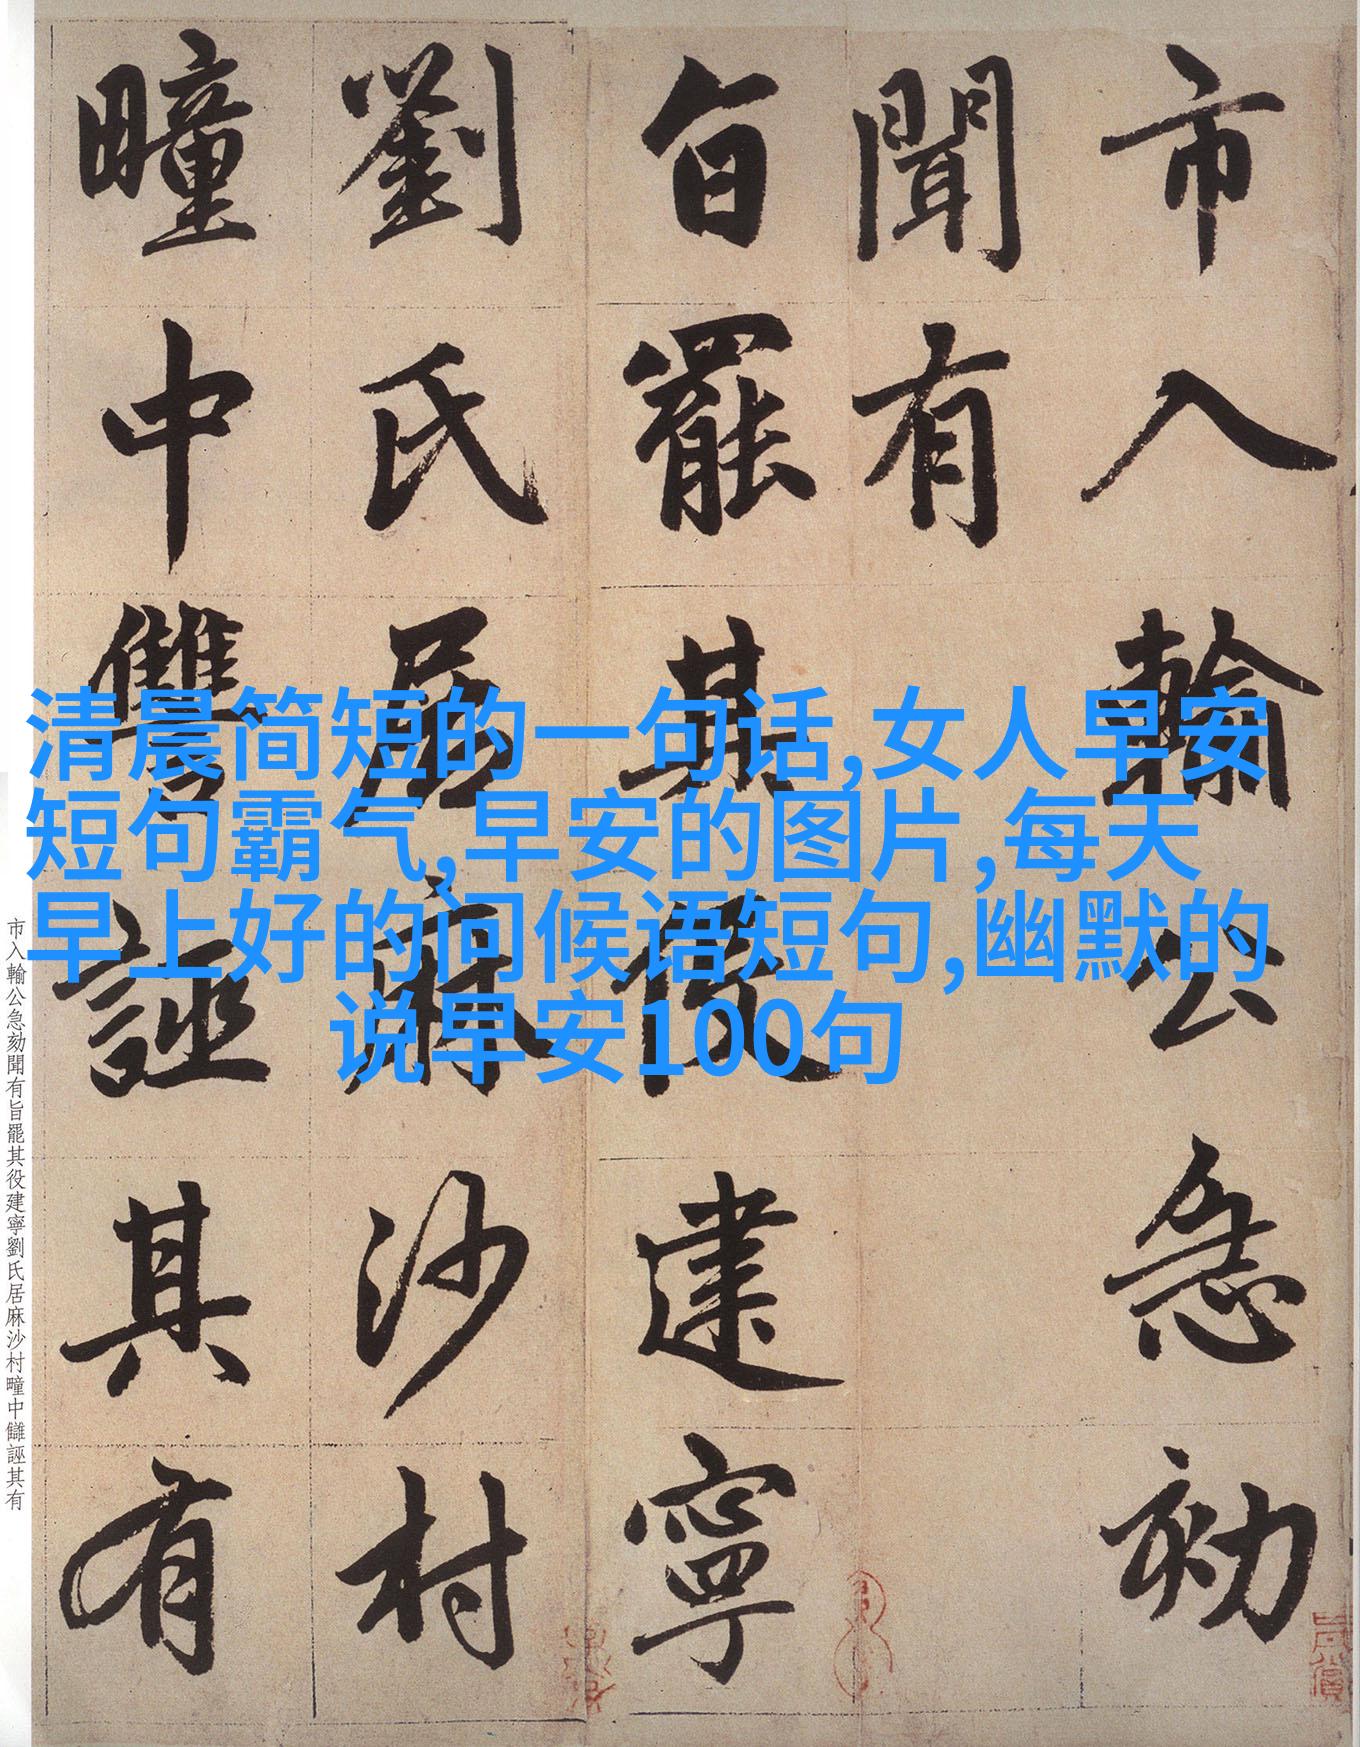 市入輸公急劾
聞有
旨罷其役建寧
劉氏居麻沙村
疃中讐誣其有
清晨简短的一句话,女人早安
短句霸气,早安的图片,每天
早上好的问候语短句,幽默的
说早安100句
市入輸公急劾聞有旨罷其役建寧劉氏居麻沙村疃中讎誣其有